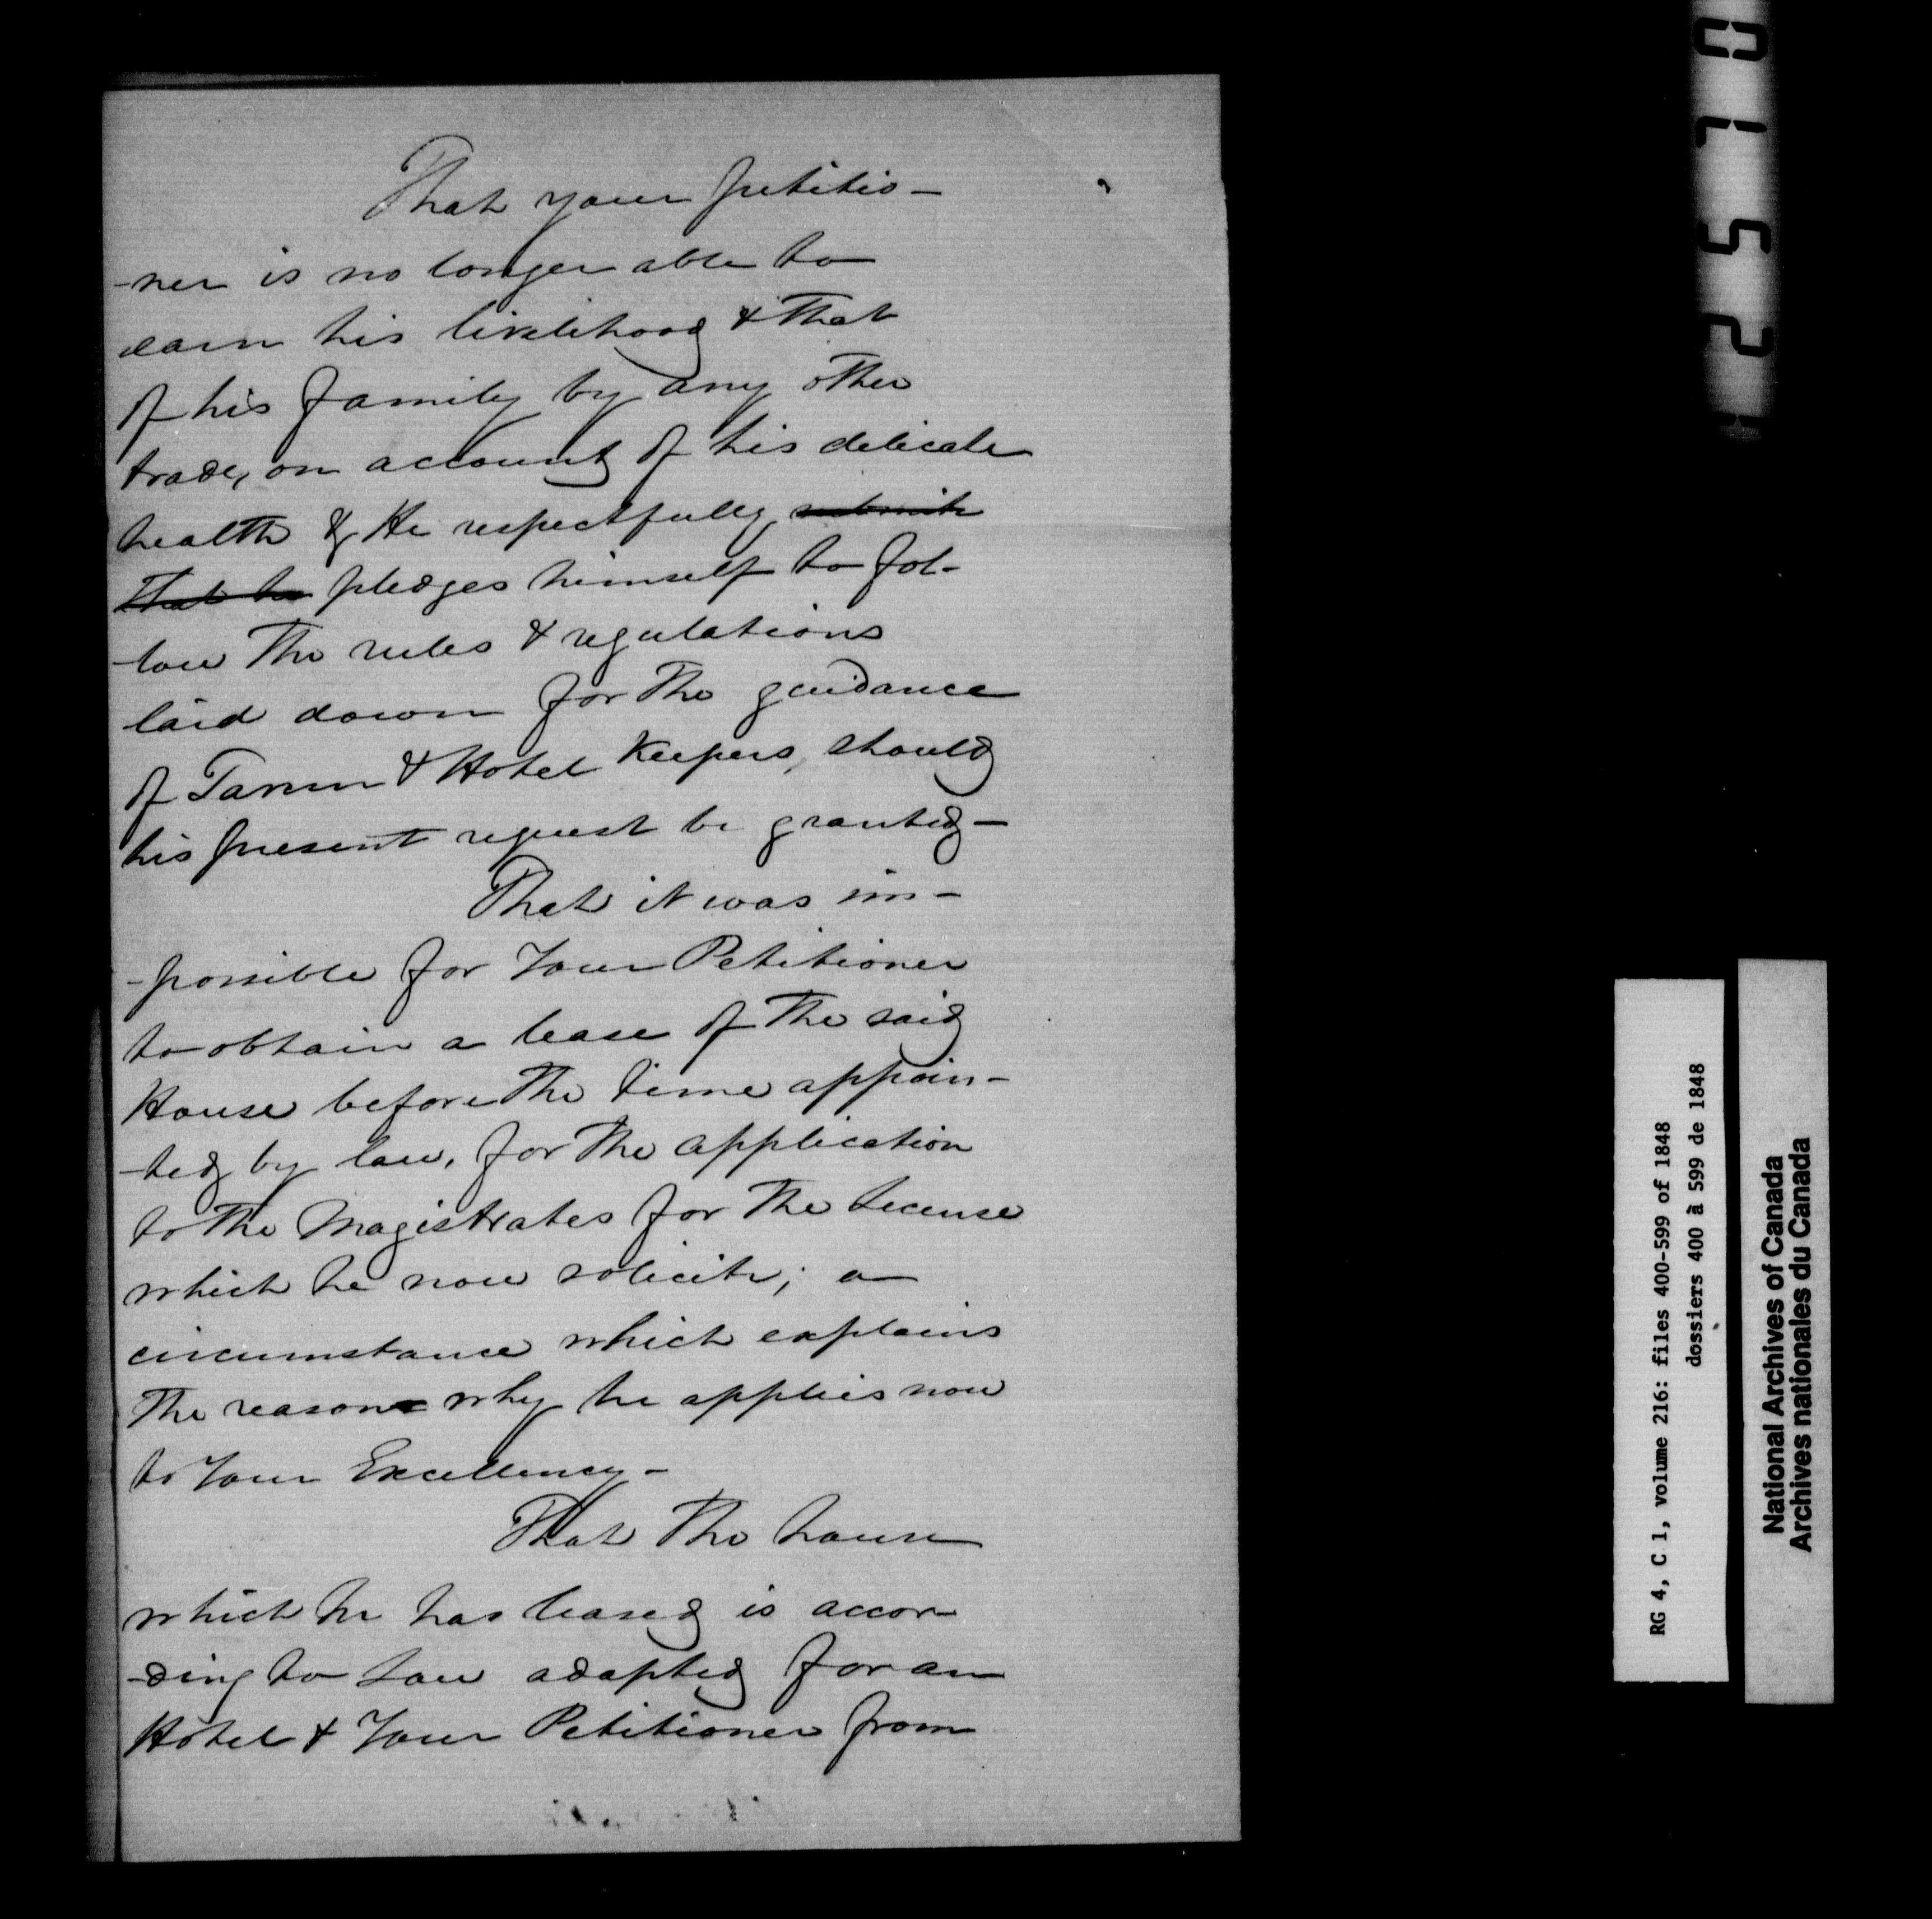 That your petitio-
-ner is no longer able to
earn his livelihood & that
of his family by any other
trade, on account of his delicate
health & He respectfully submits
that he pledges himself to fol-
-low the rules & regulations
laid down for the guidance
of Tavern & Hotel Keepers, should
his present request be granted-
That it was im-
-possible for Your Petitioner
to obtain a lease of the said
House before the time appoin-
-ted by law, for the application
to the Magistrates for the license
which he now solicits; a
circumstance which explains
the reason why he applies now
to Your Excellency-
That the house
which he has leased is accor
-ding to law adapted for an
Hotel & Your Petitioner from
0752
RG 4, C 1, volume 216: files 400-599 of 1848
dossiers 400 à 599 de 1848
National Archives of Canada
Archives nationales du Canada